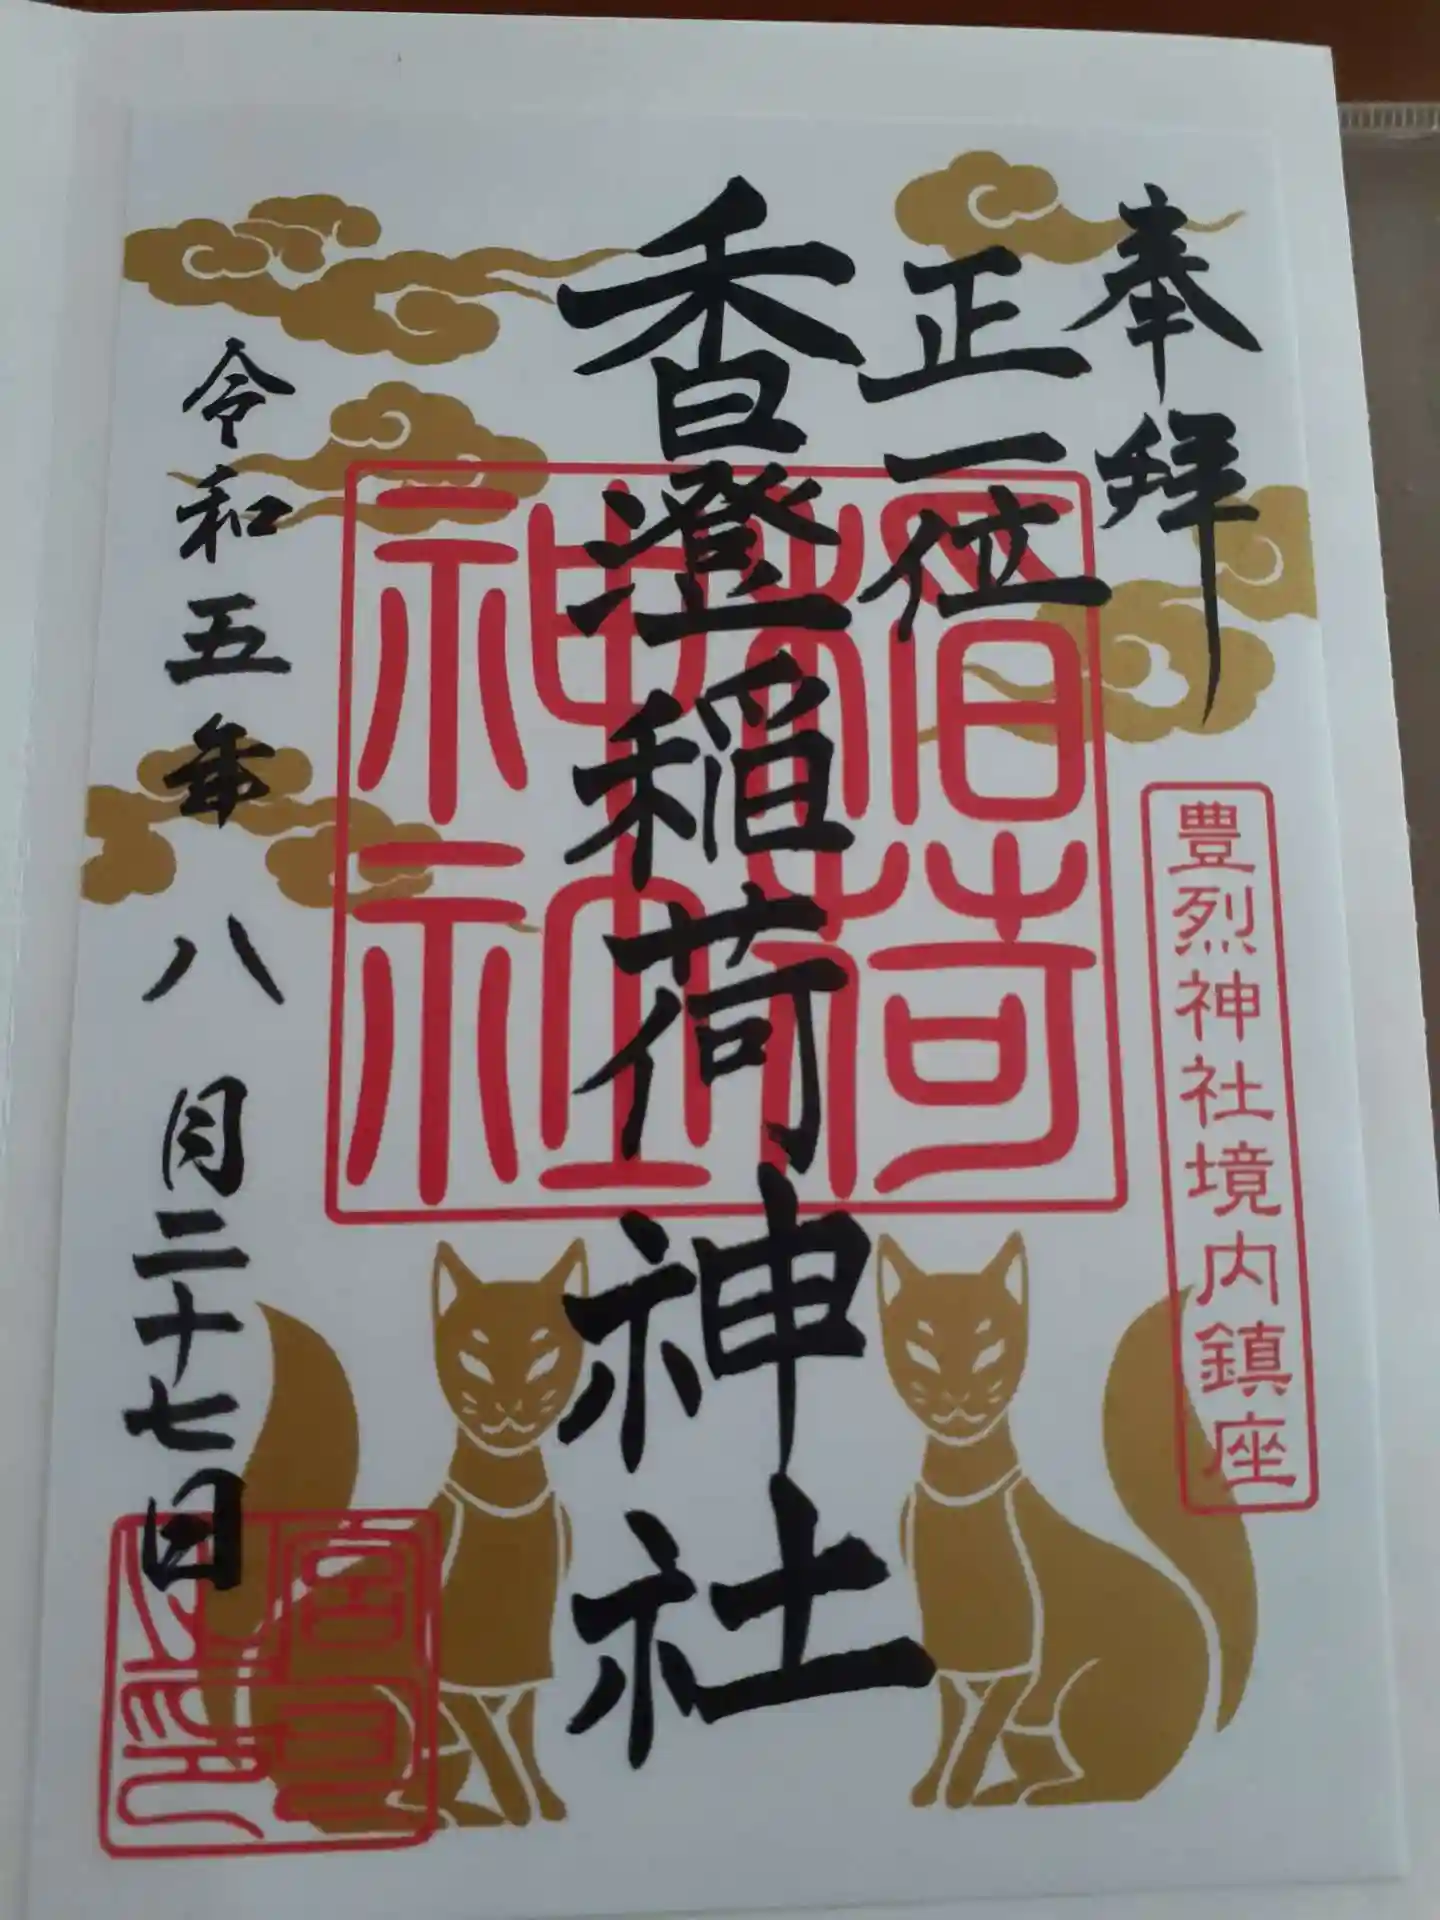 奉拝
豊烈神社境内鎮座
正一位
香澄稲荷神社
稲荷
神社
令和五年八月二十七日
宮司
之印